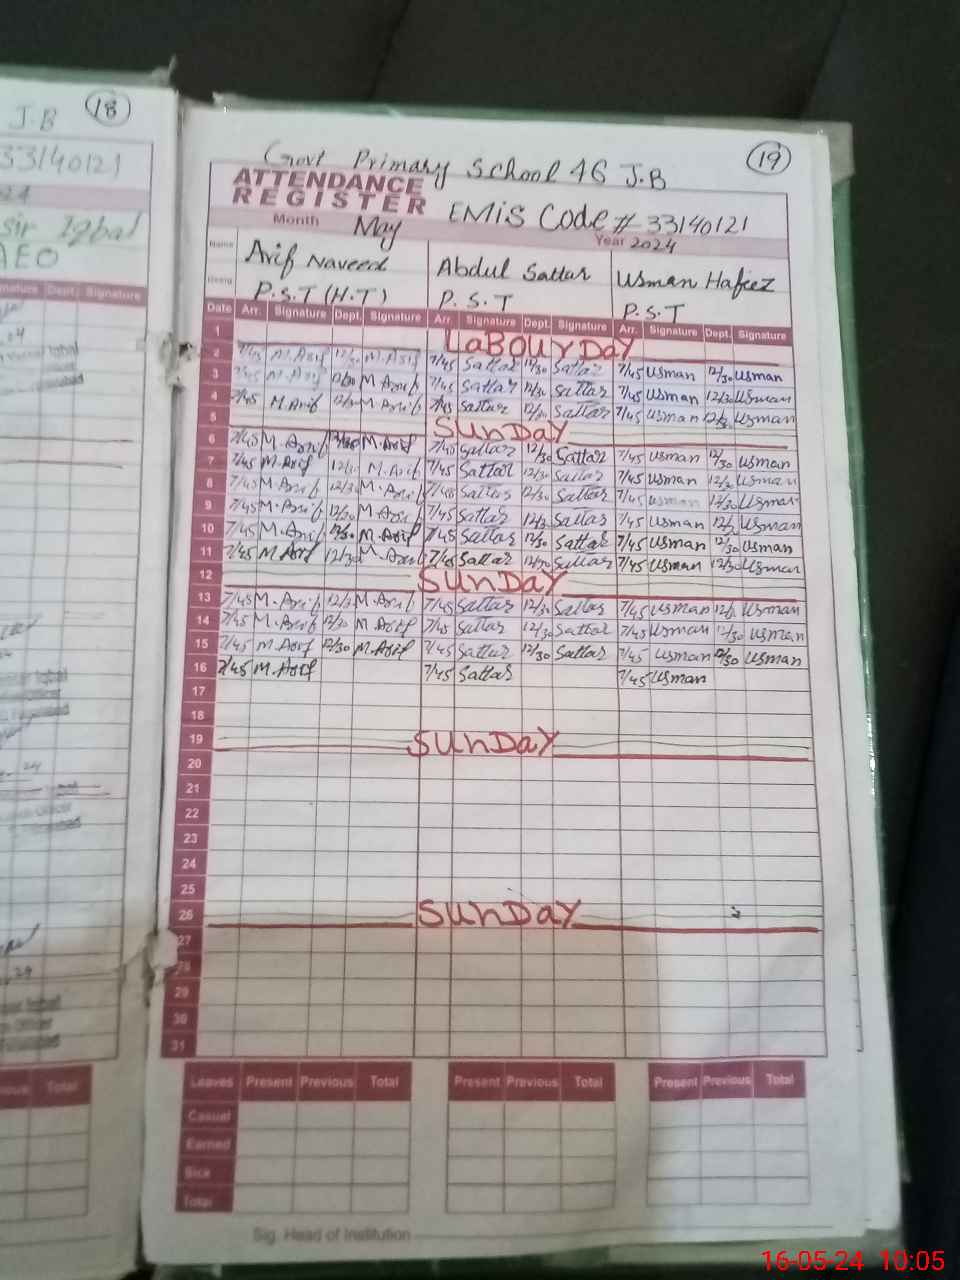 J.B 18
33140121
Iqbal
AEO
Dept. Signature
Total
19
Govt Primary School 46 J.B
ATTENDANCE
REGISTER
EMiS Code # 33140121
Month May Year 2024
Name Arif Naveed Abdul Sattar Usman Hafeez
P.S.T (H.T) P.S.T P.S.T
Date Arr. Signature Dept. Signature Arr. Signature Dept. Signature Arr. Signature Dept. Signature
1 LaBOUrDaY
2 7/45 M.Arif 12/30 M.Arif 7/45 Sattar 12/30 Sattar 7/45 usman 12/30 usman
3 7/45 M.Arif 12/30 M.Arif 7/45 Sattar 12/30 Sattar 7/45 usman 12/30 usman
4 7/45 M.Arif 12/30 M.Arif 7/45 Sattar 12/30 Sattar 7/45 usman 12/30 usman
5 SUnDaY
6 7/45 M.Arif 12/30 M.Arif 7/45 Sattar 12/30 Sattar 7/45 usman 12/30 usman
7 7/45 M.Arif 12/30 M.Arif 7/45 Sattar 12/30 Sattar 7/45 usman 12/30 usman
8 7/45 M.Arif 12/30 M.Arif 7/45 Sattar 12/30 Sattar 7/45 usman 12/30 usman
9 7/45 M.Arif 12/30 M.Arif 7/45 Sattar 12/30 Sattar 7/45 usman 12/30 usman
10 7/45 M.Arif 12/30 M.Arif 7/45 Sattar 12/30 Sattar 7/45 usman 12/30 usman
11 7/45 M.Arif 12/30 M.Arif 7/45 Sattar 12/30 Sattar 7/45 usman 12/30 usman
12 SUnDaY
13 7/45 M.Arif 12/30 M.Arif 7/45 Sattar 12/30 Sattar 7/45 usman 12/30 usman
14 7/45 M.Arif 12/30 M.Arif 7/45 Sattar 12/30 Sattar 7/45 usman 12/30 usman
15 7/45 M.Arif 12/30 M.Arif 7/45 Sattar 12/30 Sattar 7/45 usman 12/30 usman
16 7/45 M.Arif 7/45 Sattar 7/45 usman
17
18
19 SUnDaY
20
21
22
23
24
25
26 SUnDaY
27
28
29
30
31
Leaves Present Previous Total Present Previous Total Present Previous Total
Casual
Earned
Sick
Total
Sig. Head of Institution
16-05-24 10:05